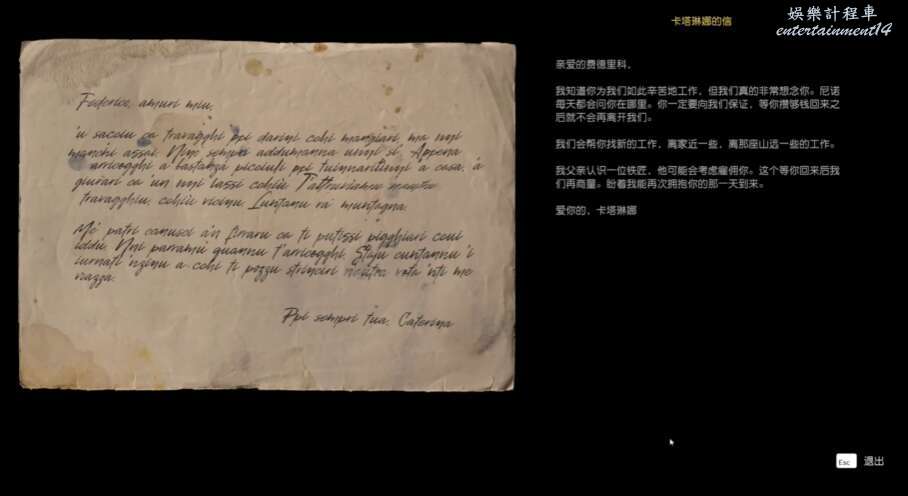 卡塔琳娜的信
娛樂計程車
entertainment14
Federico, amuri miu,
'u sacciu ca travagghi ppi darini cchi manciari, ma nni
manchi assai. Nino sempri addumanna unni si. Appena
arricogghi a bastanza picciuli ppi tuinnaritinni a casa, a
giurari ca 'un nni lassi cchiù. T'attruviamu nautru
travagghiu, cchiù vicinu. Luntanu râ muntagna.
Me patri canusci a'n firraru ca ti putissi pigghiari cun
iddu. Nni parramu quannu t'arricogghi. Staju cuntannu 'i
iurnati 'nzinu a cchi ti pozzu strinciri nautra vota 'nti me
vrazza.
Ppi sempri tua, Caterina
亲爱的费德里科，
我知道你为我们如此辛苦地工作，但我们真的非常想念你。尼诺
每天都会问你在哪里。你一定要向我们保证，等你攒够钱回来之
后就不会再离开我们。
我们会帮你找新的工作，离家近一些，离那座山远一些的工作。
我父亲认识一位铁匠，他可能会考虑雇佣你。这个等你回来后我
们再商量。盼着我能再次拥抱你的那一天到来。
爱你的，卡塔琳娜
Esc 退出